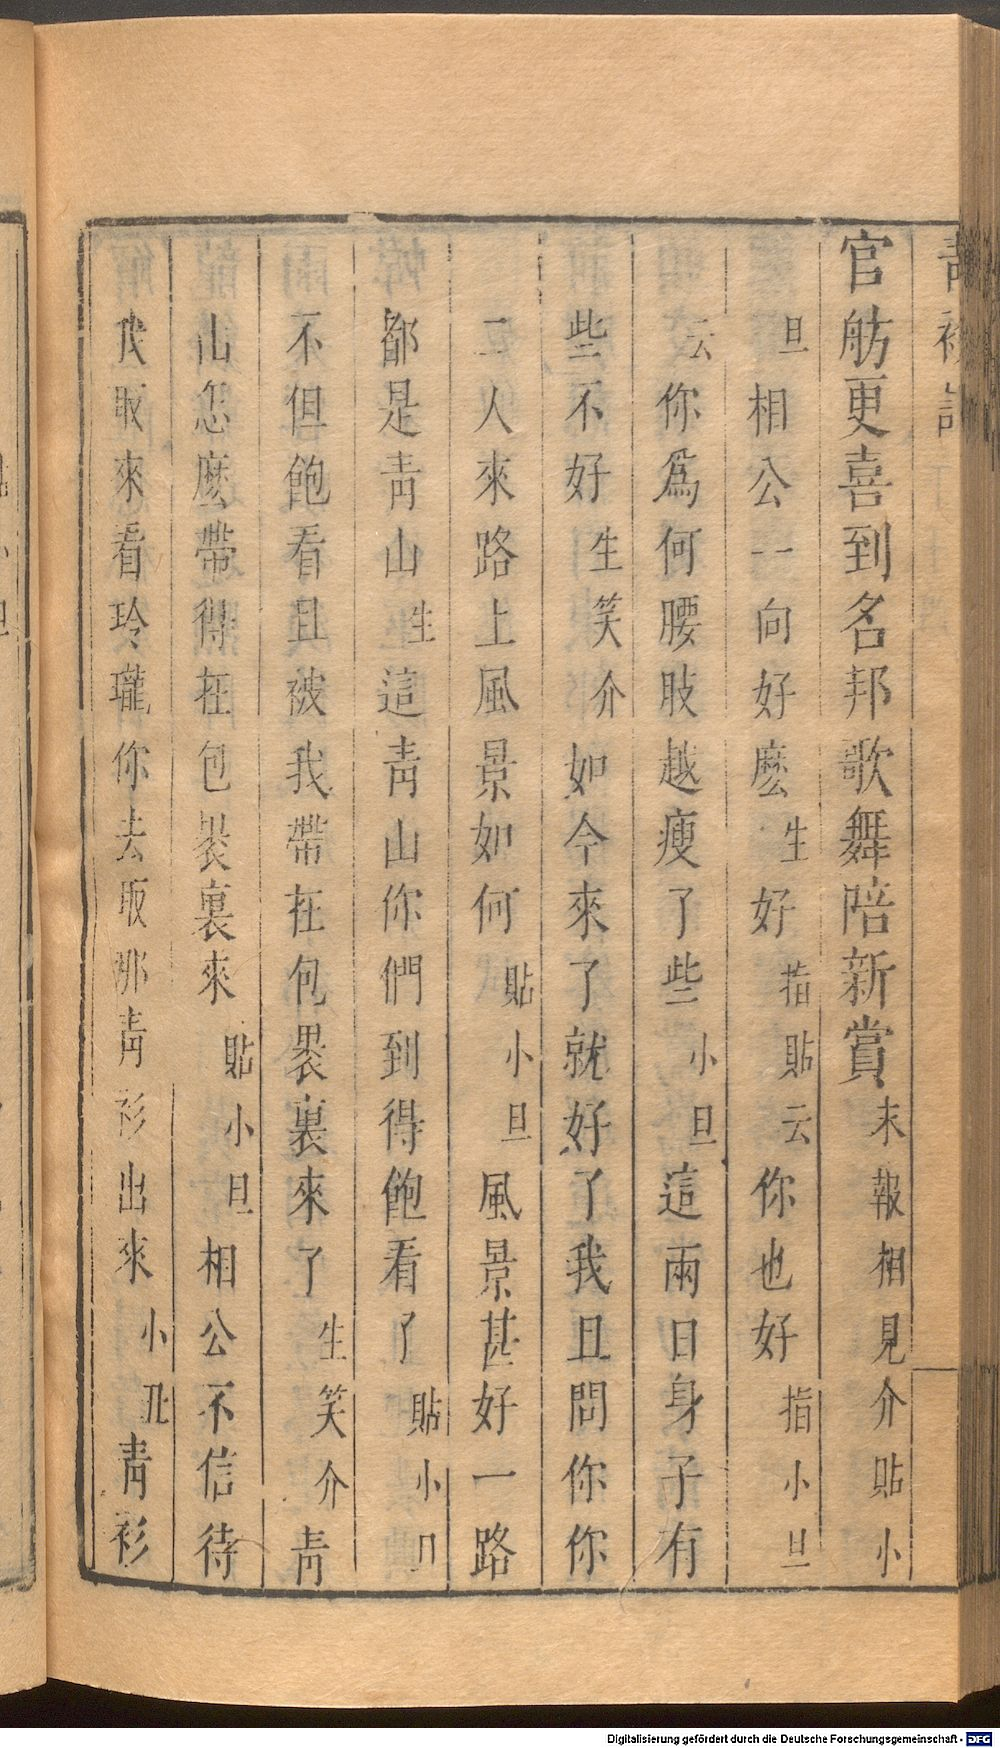 青衫記
官舫更喜到名邦歌舞陪新賞末報相見介貼小
旦相公一向好麽生好指貼云你也好指小旦
云你爲何腰肢越瘦了些小旦這兩日身子有
些不好生笑介如今來了就好了我且問你你
二人來路上風景如何貼小旦風景甚好一路
都是靑山生這靑山你們到得飽看了貼小旦
不但飽看且被我帶在包裹裏來了生笑介靑
山怎麽帶得在包裹裏來貼小旦相公不信待
我取來看玲瓏你去取那靑衫出來小丑靑衫
Digitalisierung gefördert durch die Deutsche Forschungsgemeinschaft - DFG